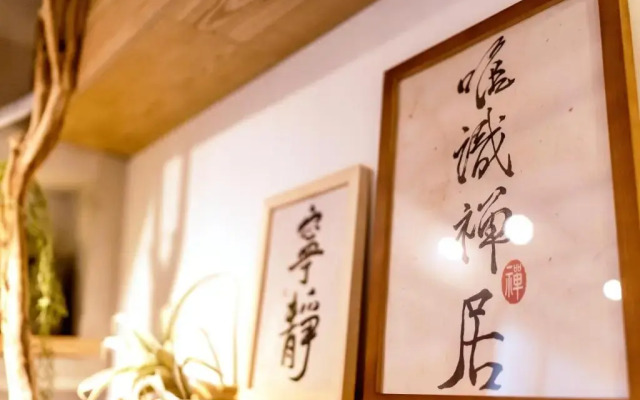 唯識禅居
禪
寧靜